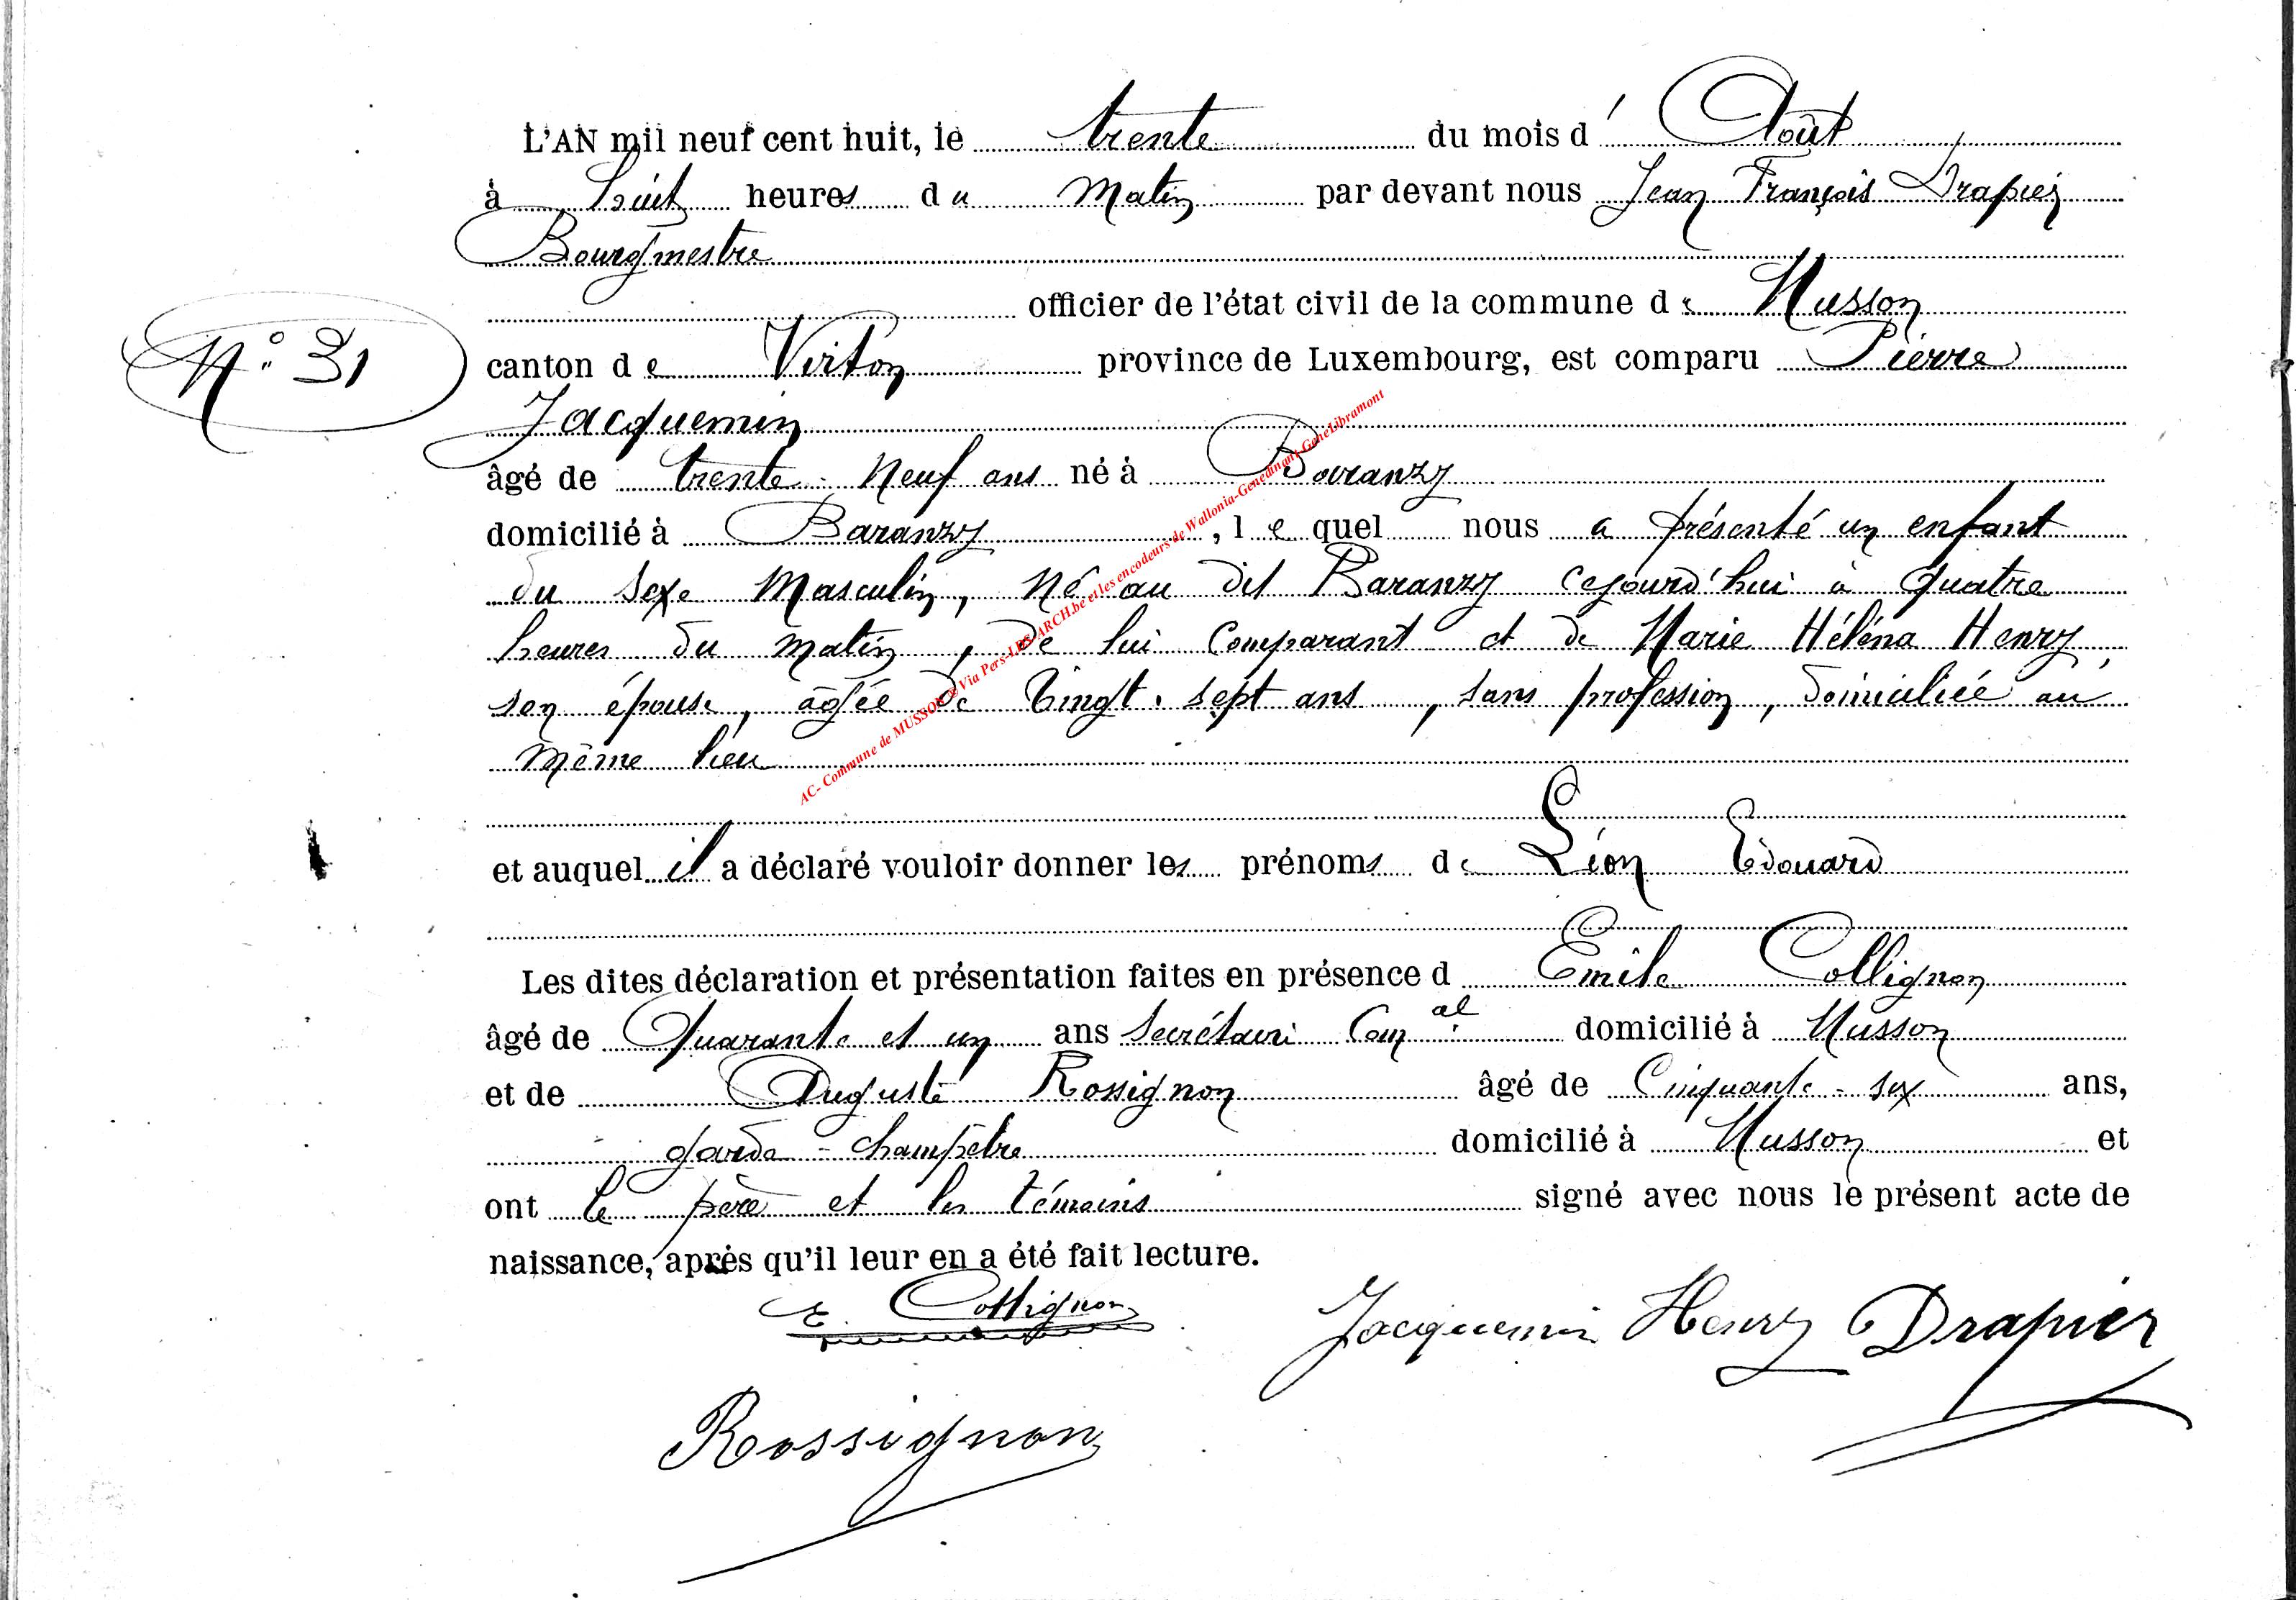 L'AN mil neuf cent huit, le trente du mois d' Août
à huit heures du Matin par devant nous Jean François Drapier
Bourgmestre
officier de l'état civil de la commune de Musson
N° 31
canton de Virton province de Luxembourg, est comparu Pierre
Jacquemin
âgé de trente-Neuf ans né à Baranzy
domicilié à Baranzy, le quel nous a présenté un enfant
du sexe Masculin, Né au dit Baranzy cejourd'hui à quatre
heures du matin, de lui Comparant et de Marie Héléna Henry,
son épouse, âgée de Vingt-sept ans, sans profession, domiciliée au
même lieu
et auquel il a déclaré vouloir donner les prénoms de Léon Edouard
Les dites déclaration et présentation faites en présence d Emile Collignon
âgé de Quarante et un ans Secrétaire Comal domicilié à Musson
et de Auguste Rossignon âgé de Cinquante-six ans,
garde-champêtre domicilié à Musson et
ont le père et les témoins signé avec nous le présent acte de
naissance, après qu'il leur en a été fait lecture.
E. Collignon Jacquemin Henry Drapier
Rossignon
AC- Commune de MUSSON @ Via Pers-LBS/ARCH.be et les encodeurs de Wallonia-Genedinant-GeneLibramont